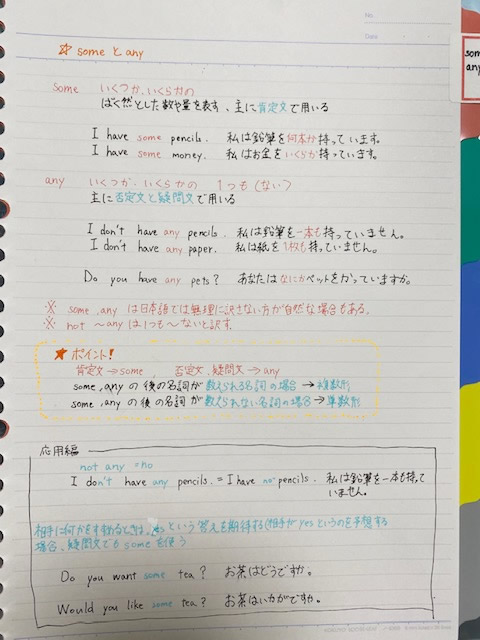 No.
Date
☆ someとany
some
any
some いくつか、いくらかの
ばく然とした数や量を表す、主に肯定文で用いる
I have some pencils. 私は鉛筆を何本か持っています。
I have some money. 私はお金をいくらか持っています。
any いくつか、いくらかの 1つも(ない)
主に否定文と疑問文で用いる
I don't have any pencils. 私は鉛筆を一本も持っていません。
I don't have any paper. 私は紙を1枚も持っていません。
Do you have any pets? あなたはなにかペットをかっていますか。
※ some, any は日本語では無理に訳さない方が自然な場合もある。
※ not 〜any は1つも〜ないと訳す。
★ポイント!
肯定文→some, 否定文、疑問文→any
some, anyの後の名詞が数えられる名詞の場合→複数形
some, anyの後の名詞が数えられない名詞の場合→単数形
応用編
not any = no
I don't have any pencils. = I have no pencils. 私は鉛筆を一本も持って
いません。
相手に何かをすすめるときは、 という答えを期待する(相手がyesというのを予想する
場合、疑問文でもsomeを使う
Do you want some tea? お茶はどうですか。
Would you like some tea? お茶はいかがですか。